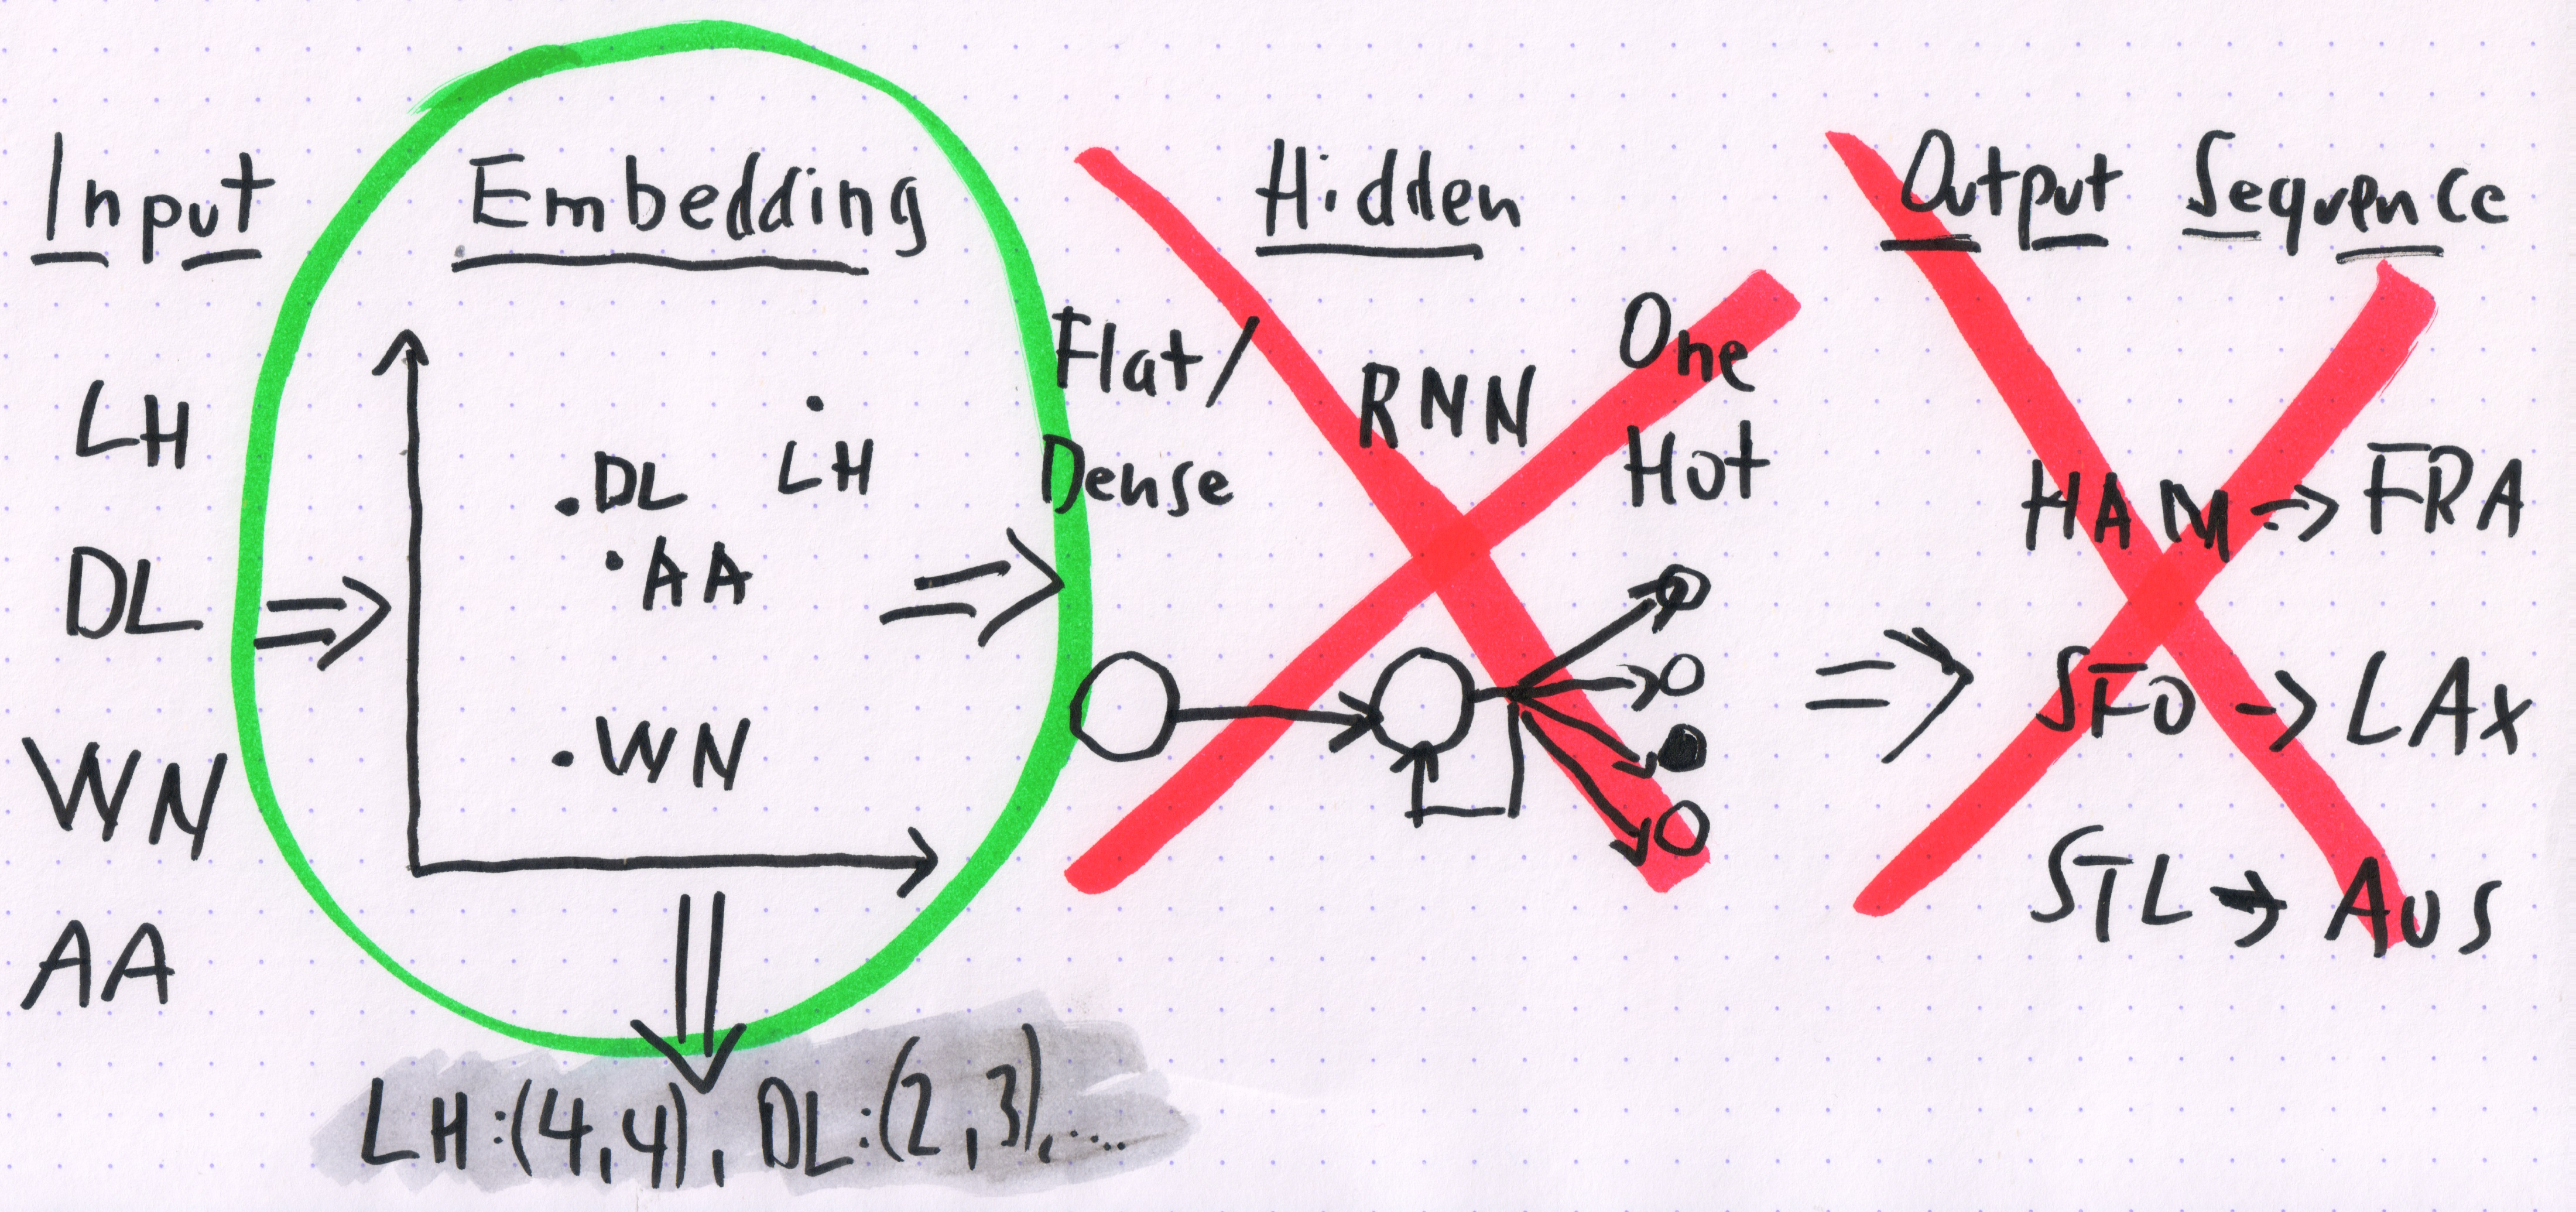 Input
LH
DL
WN
AA
Embedding
LH
DL
AA
WN
LH:(4,4), DL:(2,3),....
Hidden
Flat/
Dense
RNN
One
Hot
Output Sequence
HAM → FRA
SFO → LAX
STL → AUS